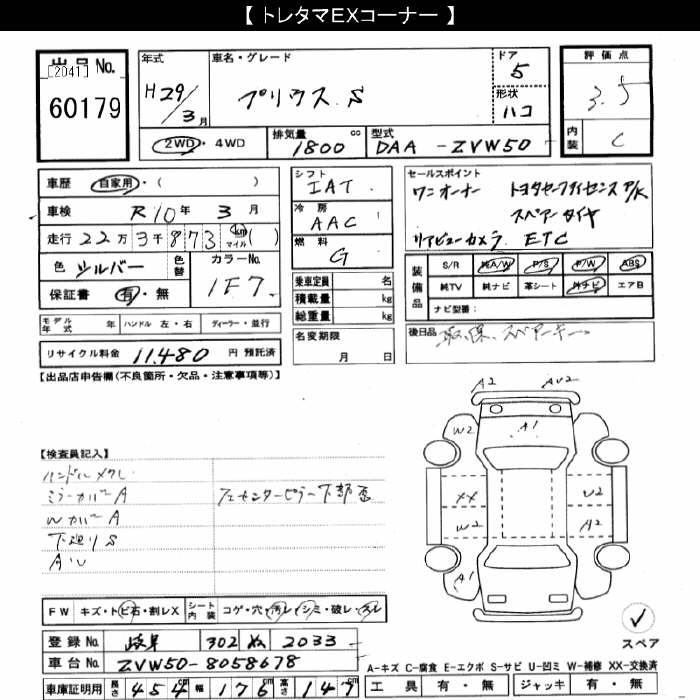 【 トレタマEXコーナー 】
出品 No.
[2041]
60179
年式
H29/3月
車名・グレード
プリウス S
ドア
5
形状
ハコ
評価点
3.5
内装
C
2WD・4WD
排気量
1800 cc
型式
DAA -ZVW50
車歴 自家用・( )
車検 R10年 3月
走行 22万3千873 km マイル ( )
色 シルバー
色替
カラーNo.
1F7
保証書 有・無
シフト
IAT
冷房
AAC
燃料
G
乗車定員 名
積載量 kg
総重量 kg
名変期限
月 日
セールスポイント
ワンオーナー トヨタセーフティセンス P/K
スペアータイヤ
リアビューカメラ ETC
装備品
S/R 純A/W P/S P/W ABS
純TV 純ナビ 革シート 外ナビ エアB
ナビ型番:
後日品
取、保、スペアーキー
モデル年式 年 ハンドル 左・右 ディーラー・並行
リサイクル料金 11,480 円 預託済
【出品店申告欄(不良箇所・欠品・注意事項等)】
【検査員記入】
ハンドルメクレ
ミラーカバーA
Wカバー A
下廻りS
AU
センターピラー下部歪
A2
AU2
W2
A1
XX
U2
W2
A2
A1
FW キズ・トビ石・割レX
シート内装 コゲ・穴・汚レ・シミ・破レ・スレ
登録 No. 岐阜 302 ぬ 2033
車台 No. ZVW50-8058678
車庫証明用 長さ 454 cm 幅 176 cm 高さ 147 cm
スペア
A-キズ C-腐食 E-エクボ S-サビ U-凹ミ W-補修 XX-交換済
工具 有・無 ジャッキ 有・無